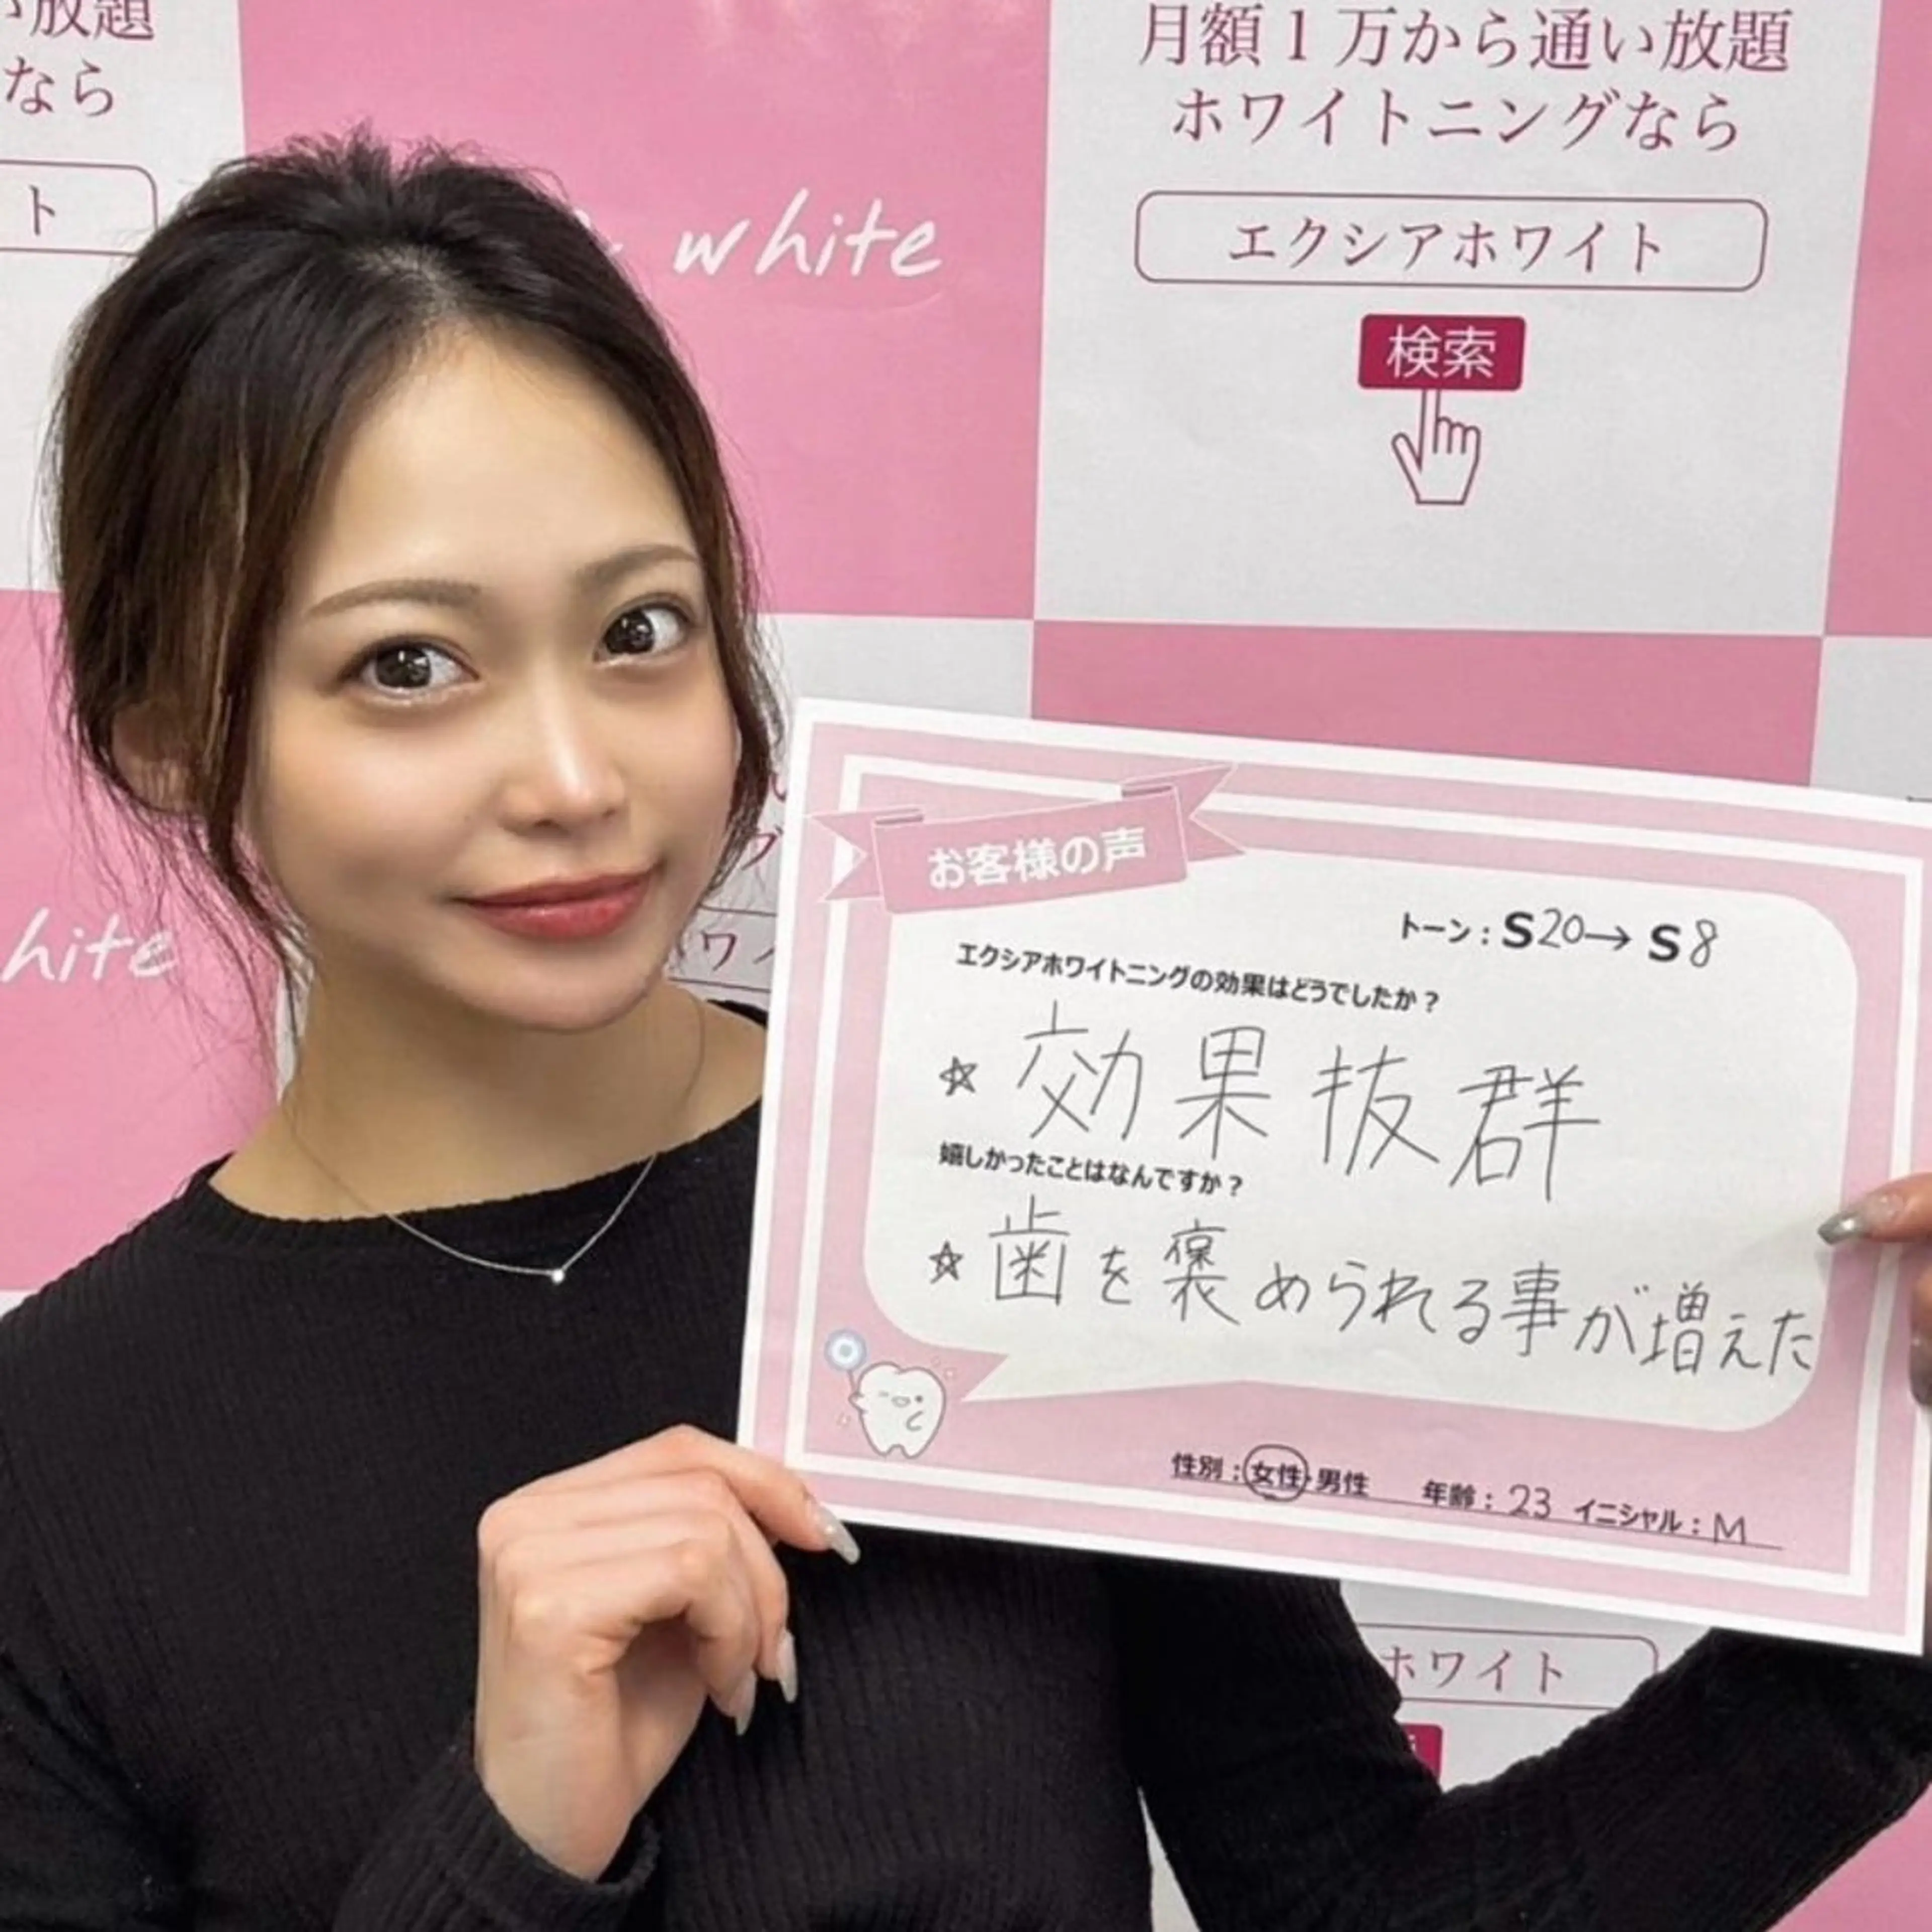 い放題
なら
ト
white
月額1万から通い放題
ホワイトニングなら
エクシアホワイト
検索
hite
ワ
お客様の声
トーン：S20→S8
エクシアホワイトニングの効果はどうでしたか？
☆ 効果抜群
嬉しかったことはなんですか？
☆ 歯を褒められる事が増えた
性別：女性・男性 年齢：23 イニシャル：M
ホワイト